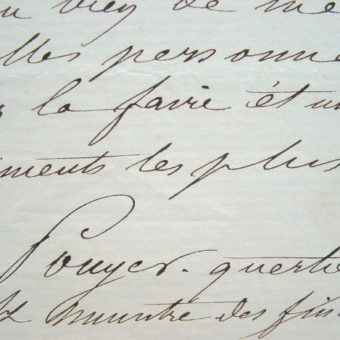 elles personne
la faire et un
iments les plus
Pouyer. quertie
ministre des fin